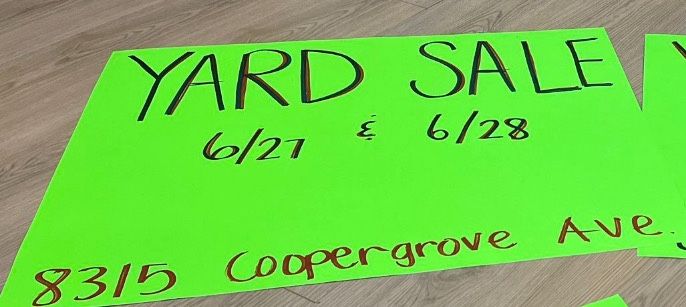 YARD SALE
6/27 & 6/28
8315 Coopergrove Ave.